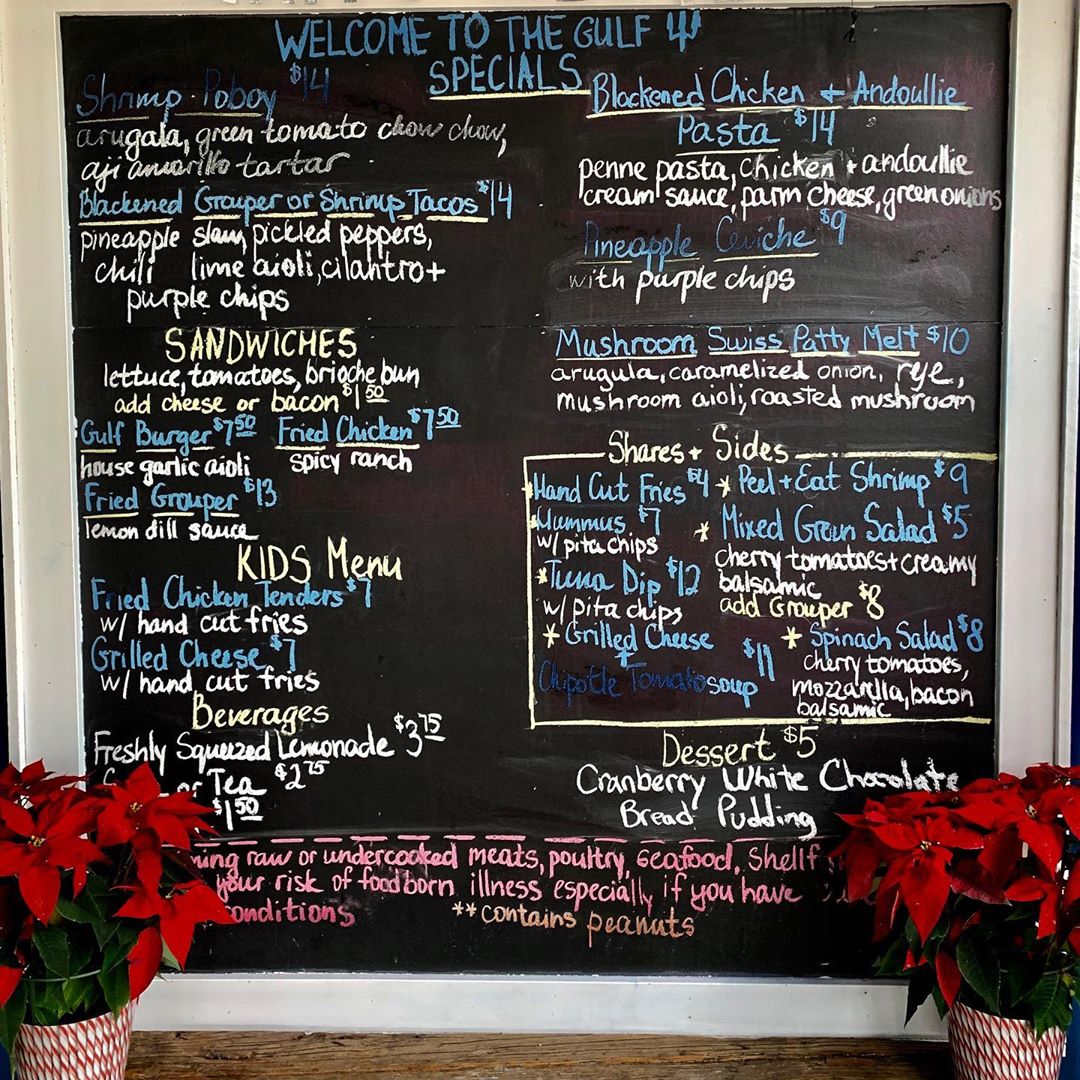 WELCOME TO THE GULF
SPECIALS
Shrimp Poboy $14
arugala, green tomato chow chow,
aji amarillo tartar
Blackened Grouper or Shrimp Tacos $14
pineapple slaw, pickled peppers,
chili lime aioli, cilantro +
purple chips
Blackened Chicken + Andoullie
Pasta $14
penne pasta, chicken + andoullie
cream sauce, parm cheese, green onions
Pineapple Ceviche $9
with purple chips
SANDWICHES
lettuce, tomatoes, brioche bun
add cheese or bacon $1 50
Gulf Burger $7 50 Fried Chicken $7 50
house garlic aioli spicy ranch
Fried Grouper $13
lemon dill sauce
KIDS Menu
Fried Chicken Tenders $7
w/ hand cut fries
Grilled Cheese $7
w/ hand cut fries
Beverages
Freshly Squeezed Lemonade $3 75
or Tea $2 75
$1 50
Mushroom Swiss Patty Melt $10
arugula, caramelized onion, rye,
mushroom aioli, roasted mushroom
Shares + Sides
* Hand Cut Fries $4
* Hummus $7
w/ pita chips
* Tuna Dip $12
w/ pita chips
* Grilled Cheese
+
Chipotle Tomato soup $11
* Peel + Eat Shrimp $9
* Mixed Green Salad $5
cherry tomatoes + creamy
balsamic
add Grouper $8
* Spinach Salad $8
cherry tomatoes,
mozzarella, bacon
balsamic
Dessert $5
Cranberry White Chocolate
Bread Pudding
raw or undercooked meats, poultry, seafood,
your risk of foodborn illness especially if you have
conditions **contains peanuts